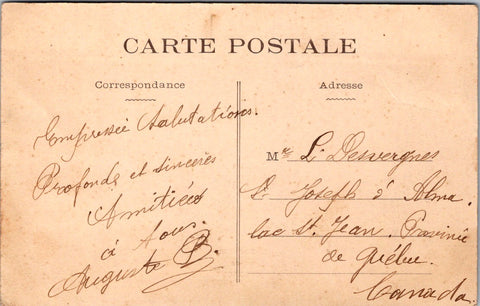 CARTE POSTALE
Correspondance
Empressée Salutations.
Profonde et sincères
Amitiées
à tous.
Auguste B.
Adresse
Mr L. Desvergnes
St Joseph d'Alma.
lac St. Jean. Province
de Québec.
Canada.